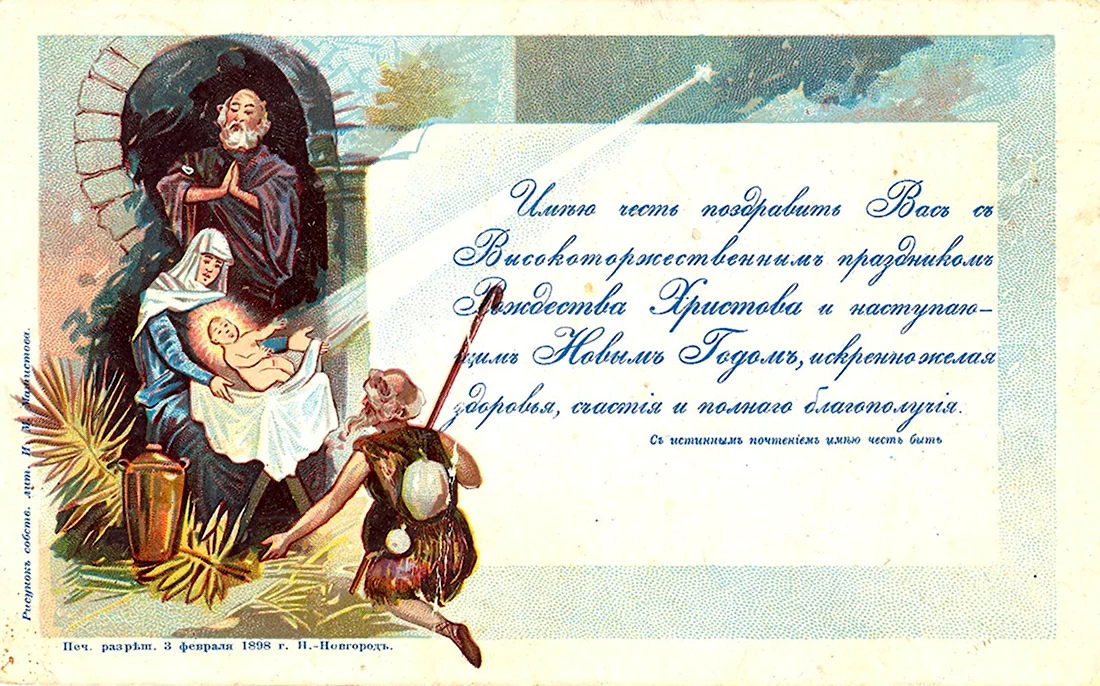 Имѣю честь поздравить Васъ съ
Высокоторжественнымъ праздникомъ
Рождества Христова и наступаю-
щимъ Новымъ Годомъ, искренно желая
здоровья, счастія и полнаго благополучія.
Съ истиннымъ почтеніемъ имѣю честь быть
Печ. разрѣш. 3 февраля 1898 г. Н.-Новгородъ.
Рисунокъ собств. лит. И. М. Машистова.